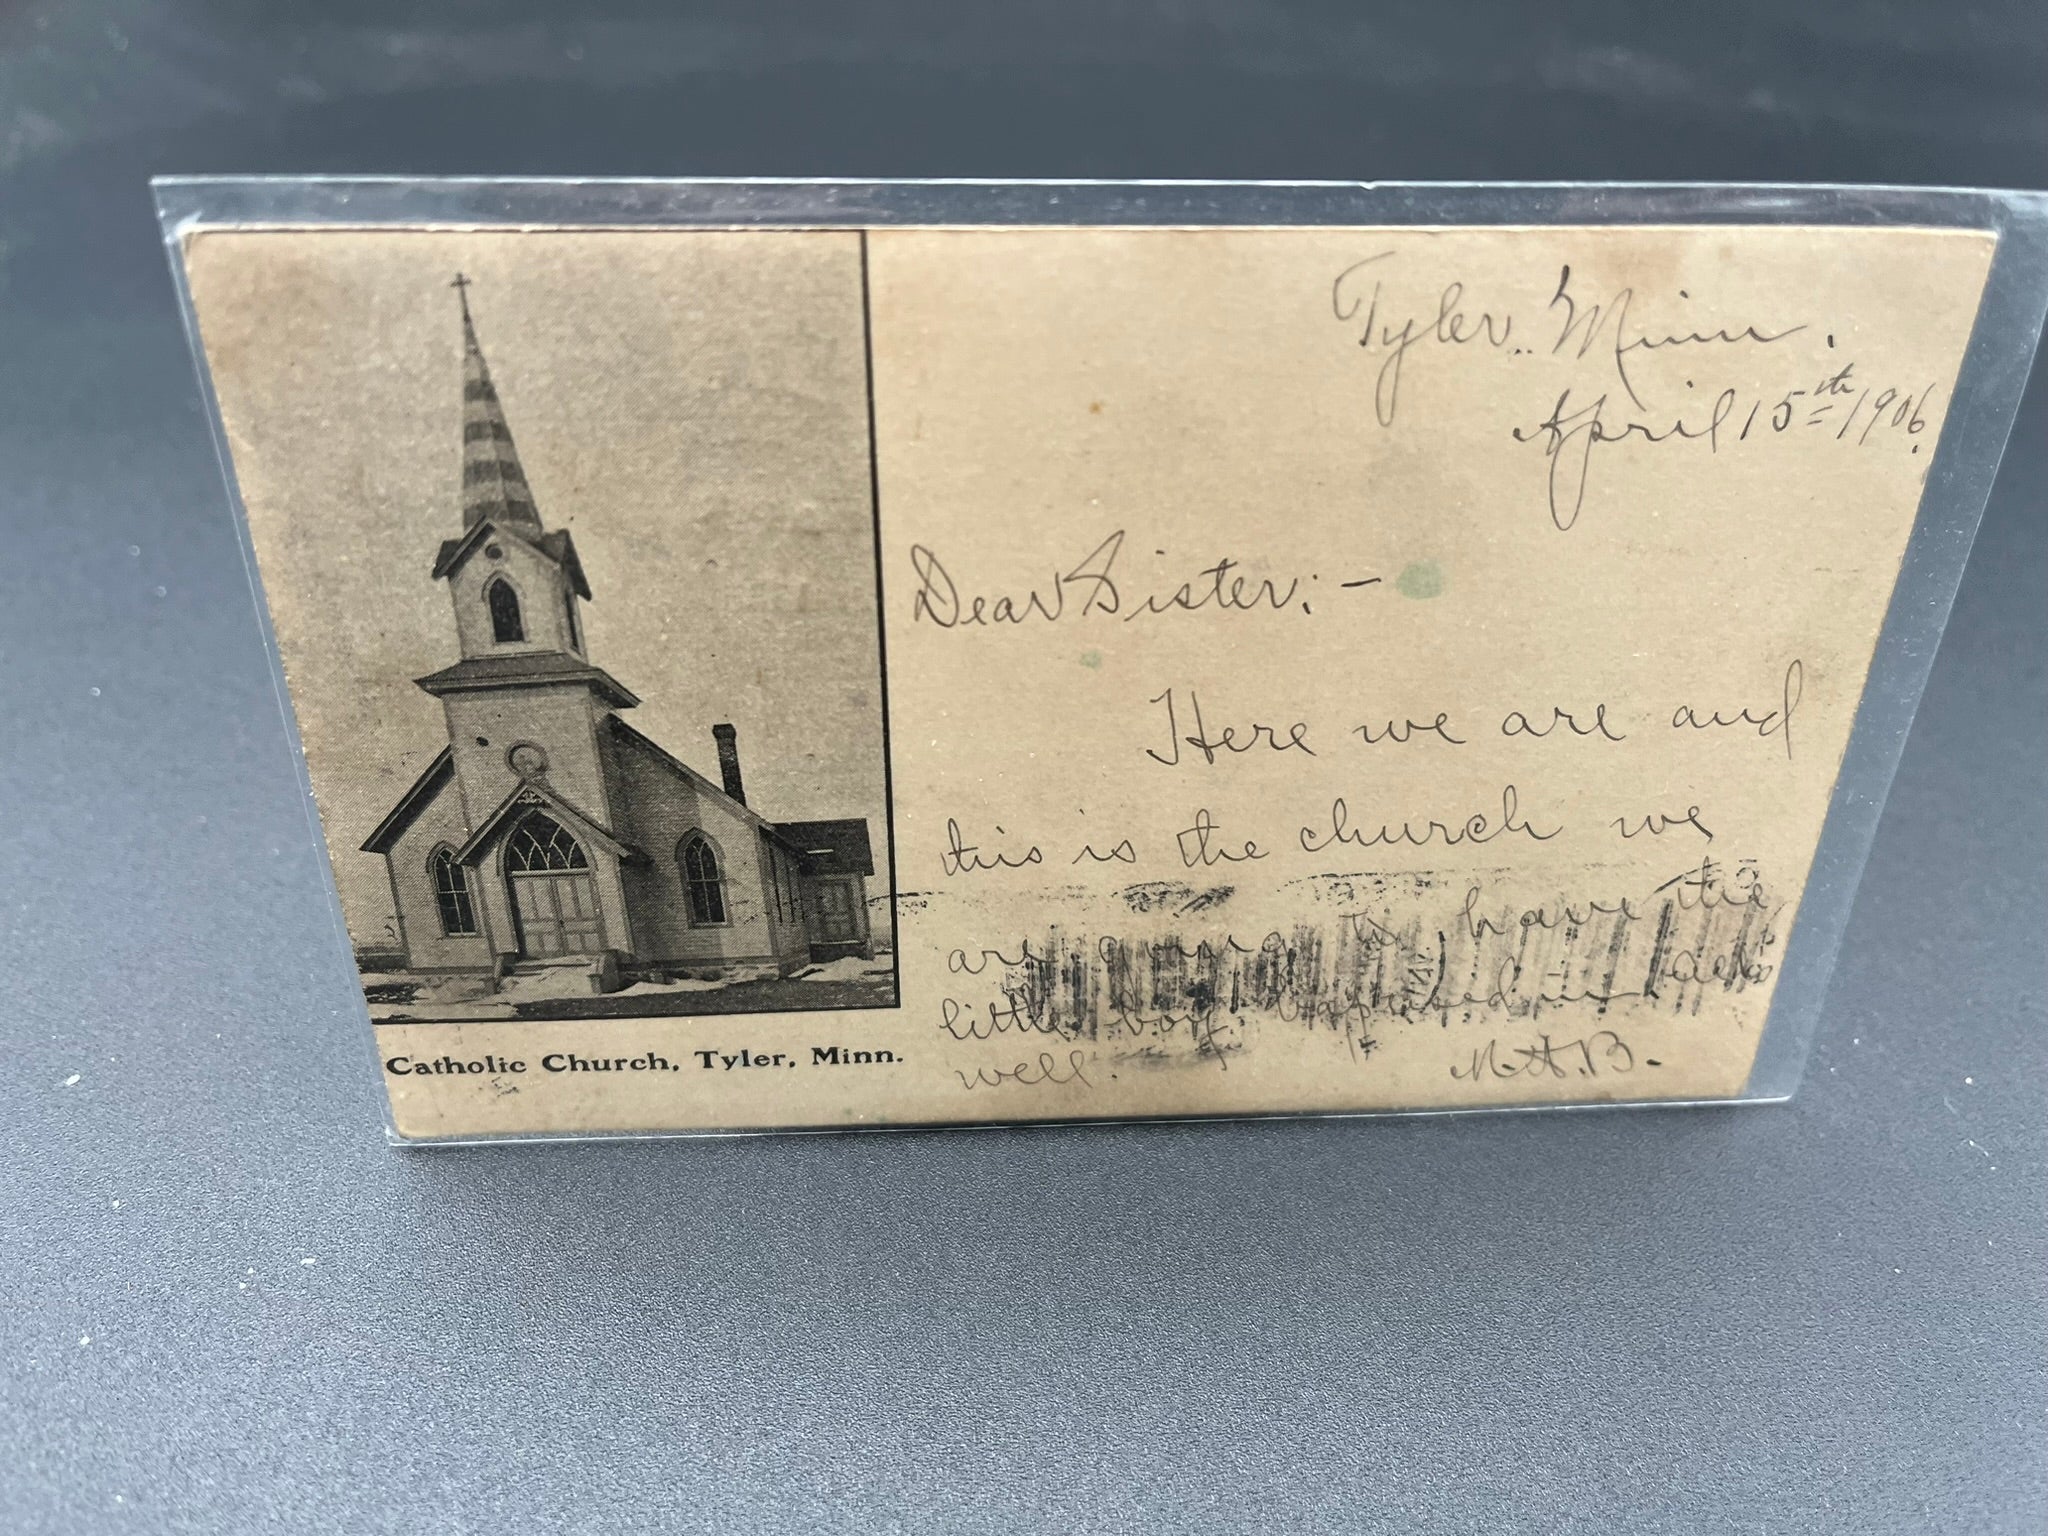 Tyler, Minn.
April 15th 1906.
Dear Sister; -
Here we are and
this is the church we
are going to have the
little boy baptised in. all
well.
M.A.B.
Catholic Church, Tyler, Minn.